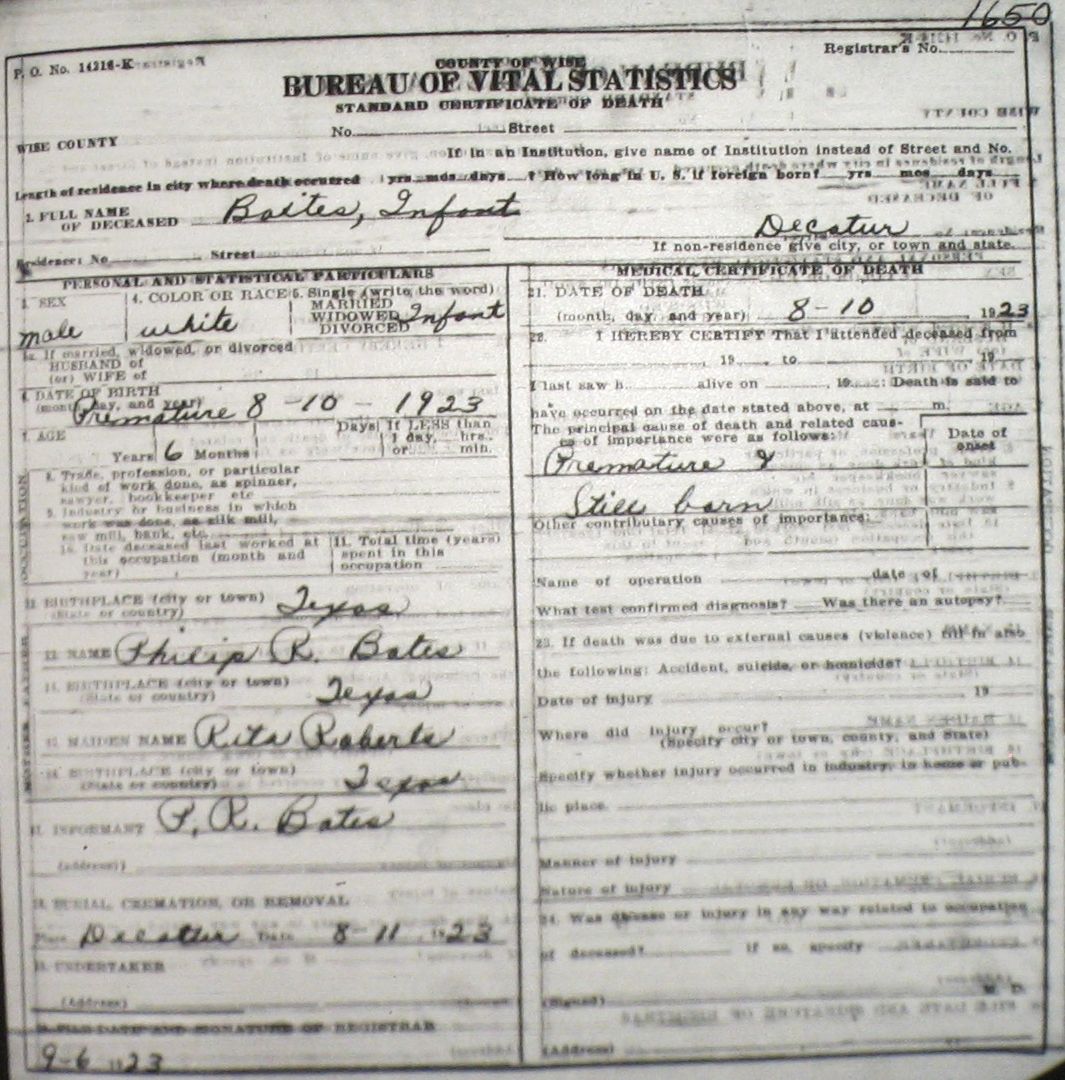 1650
P. O. No. 14216-K
Registrar's No.
COUNTY OF WISE
BUREAU OF VITAL STATISTICS
STANDARD CERTIFICATE OF DEATH
WISE COUNTY
No. Street
If in an Institution, give name of Institution instead of Street and No.
Length of residence in city where death occurred yrs. mos. days ? How long in U. S. if foreign born? yrs mos. days
2. FULL NAME OF DECEASED Baites, Infant
Decatur
Residence: No. Street
If non-residence give city, or town and state.
PERSONAL AND STATISTICAL PARTICULARS
3. SEX male
4. COLOR OR RACE white
5. Single (write the word) MARRIED WIDOWED DIVORCED Infant
5a. If married, widowed, or divorced
HUSBAND of
(or) WIFE of
6. DATE OF BIRTH
(month, day, and year) Premature 8-10-1923
7. AGE Years 6 Months Days If LESS than 1 day, hrs. or min.
8. Trade, profession, or particular
kind of work done, as spinner,
sawyer, bookkeeper etc
9. Industry or business in which
work was done, as silk mill,
saw mill, bank, etc.
10. Date deceased last worked at
this occupation (month and
year)
11. Total time (years)
spent in this
occupation
12. BIRTHPLACE (city or town)
(State or country) Texas
13. NAME Philip R. Bates
14. BIRTHPLACE (city or town)
(State or country) Texas
15. MAIDEN NAME Rita Roberts
16. BIRTHPLACE (city or town)
(State or country) Texas
17. INFORMANT P. R. Bates
(address)
18. BURIAL, CREMATION, OR REMOVAL
Place Decatur Date 8-11 1923
19. UNDERTAKER
(Address)
20. FILE DATE AND SIGNATURE OF REGISTRAR
9-6 1923
MEDICAL CERTIFICATE OF DEATH
21. DATE OF DEATH
(month, day, and year) 8-10 1923
22. I HEREBY CERTIFY That I attended deceased from
, 19 to , 19
I last saw h alive on , 19 Death is said to
have occurred on the date stated above, at m.
The principal cause of death and related causes of importance were as follows:
Date of onset
Premature &
Still born
Other contributary causes of importance:
Name of operation date of
What test confirmed diagnosis? Was there an autopsy?
23. If death was due to external causes (violence) fill in also
the following: Accident, suicide, or homicide?
Date of injury 19
Where did injury occur?
(Specify city or town, county, and State)
Specify whether injury occurred in industry, in home or public place.
Manner of injury
Nature of injury
24. Was disease or injury in any way related to occupation
of deceased? if so, specify
(Signed) M. D.
(Address)